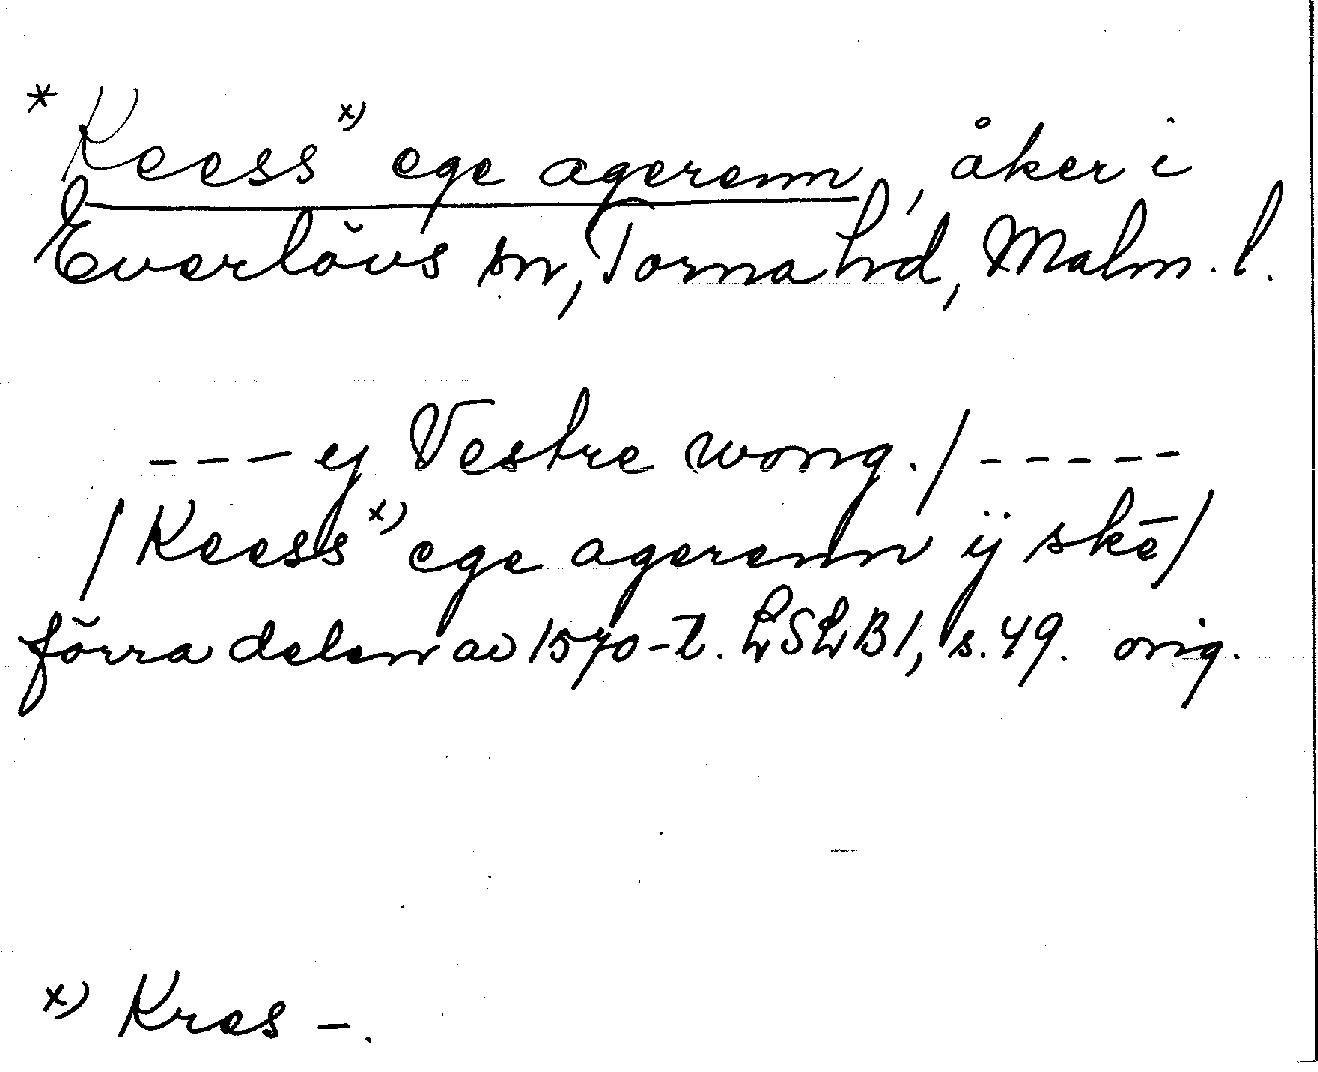 * Keess x) ege agerenn, åker i
Everlövs sn, Torna hd, Malm. l.
--- ij Vestre wong. / -----
/ Keess x) ege agerenn ij skē /
förra delen av 1570-t. LSLB 1, s. 49. orig.
x) Kres -.